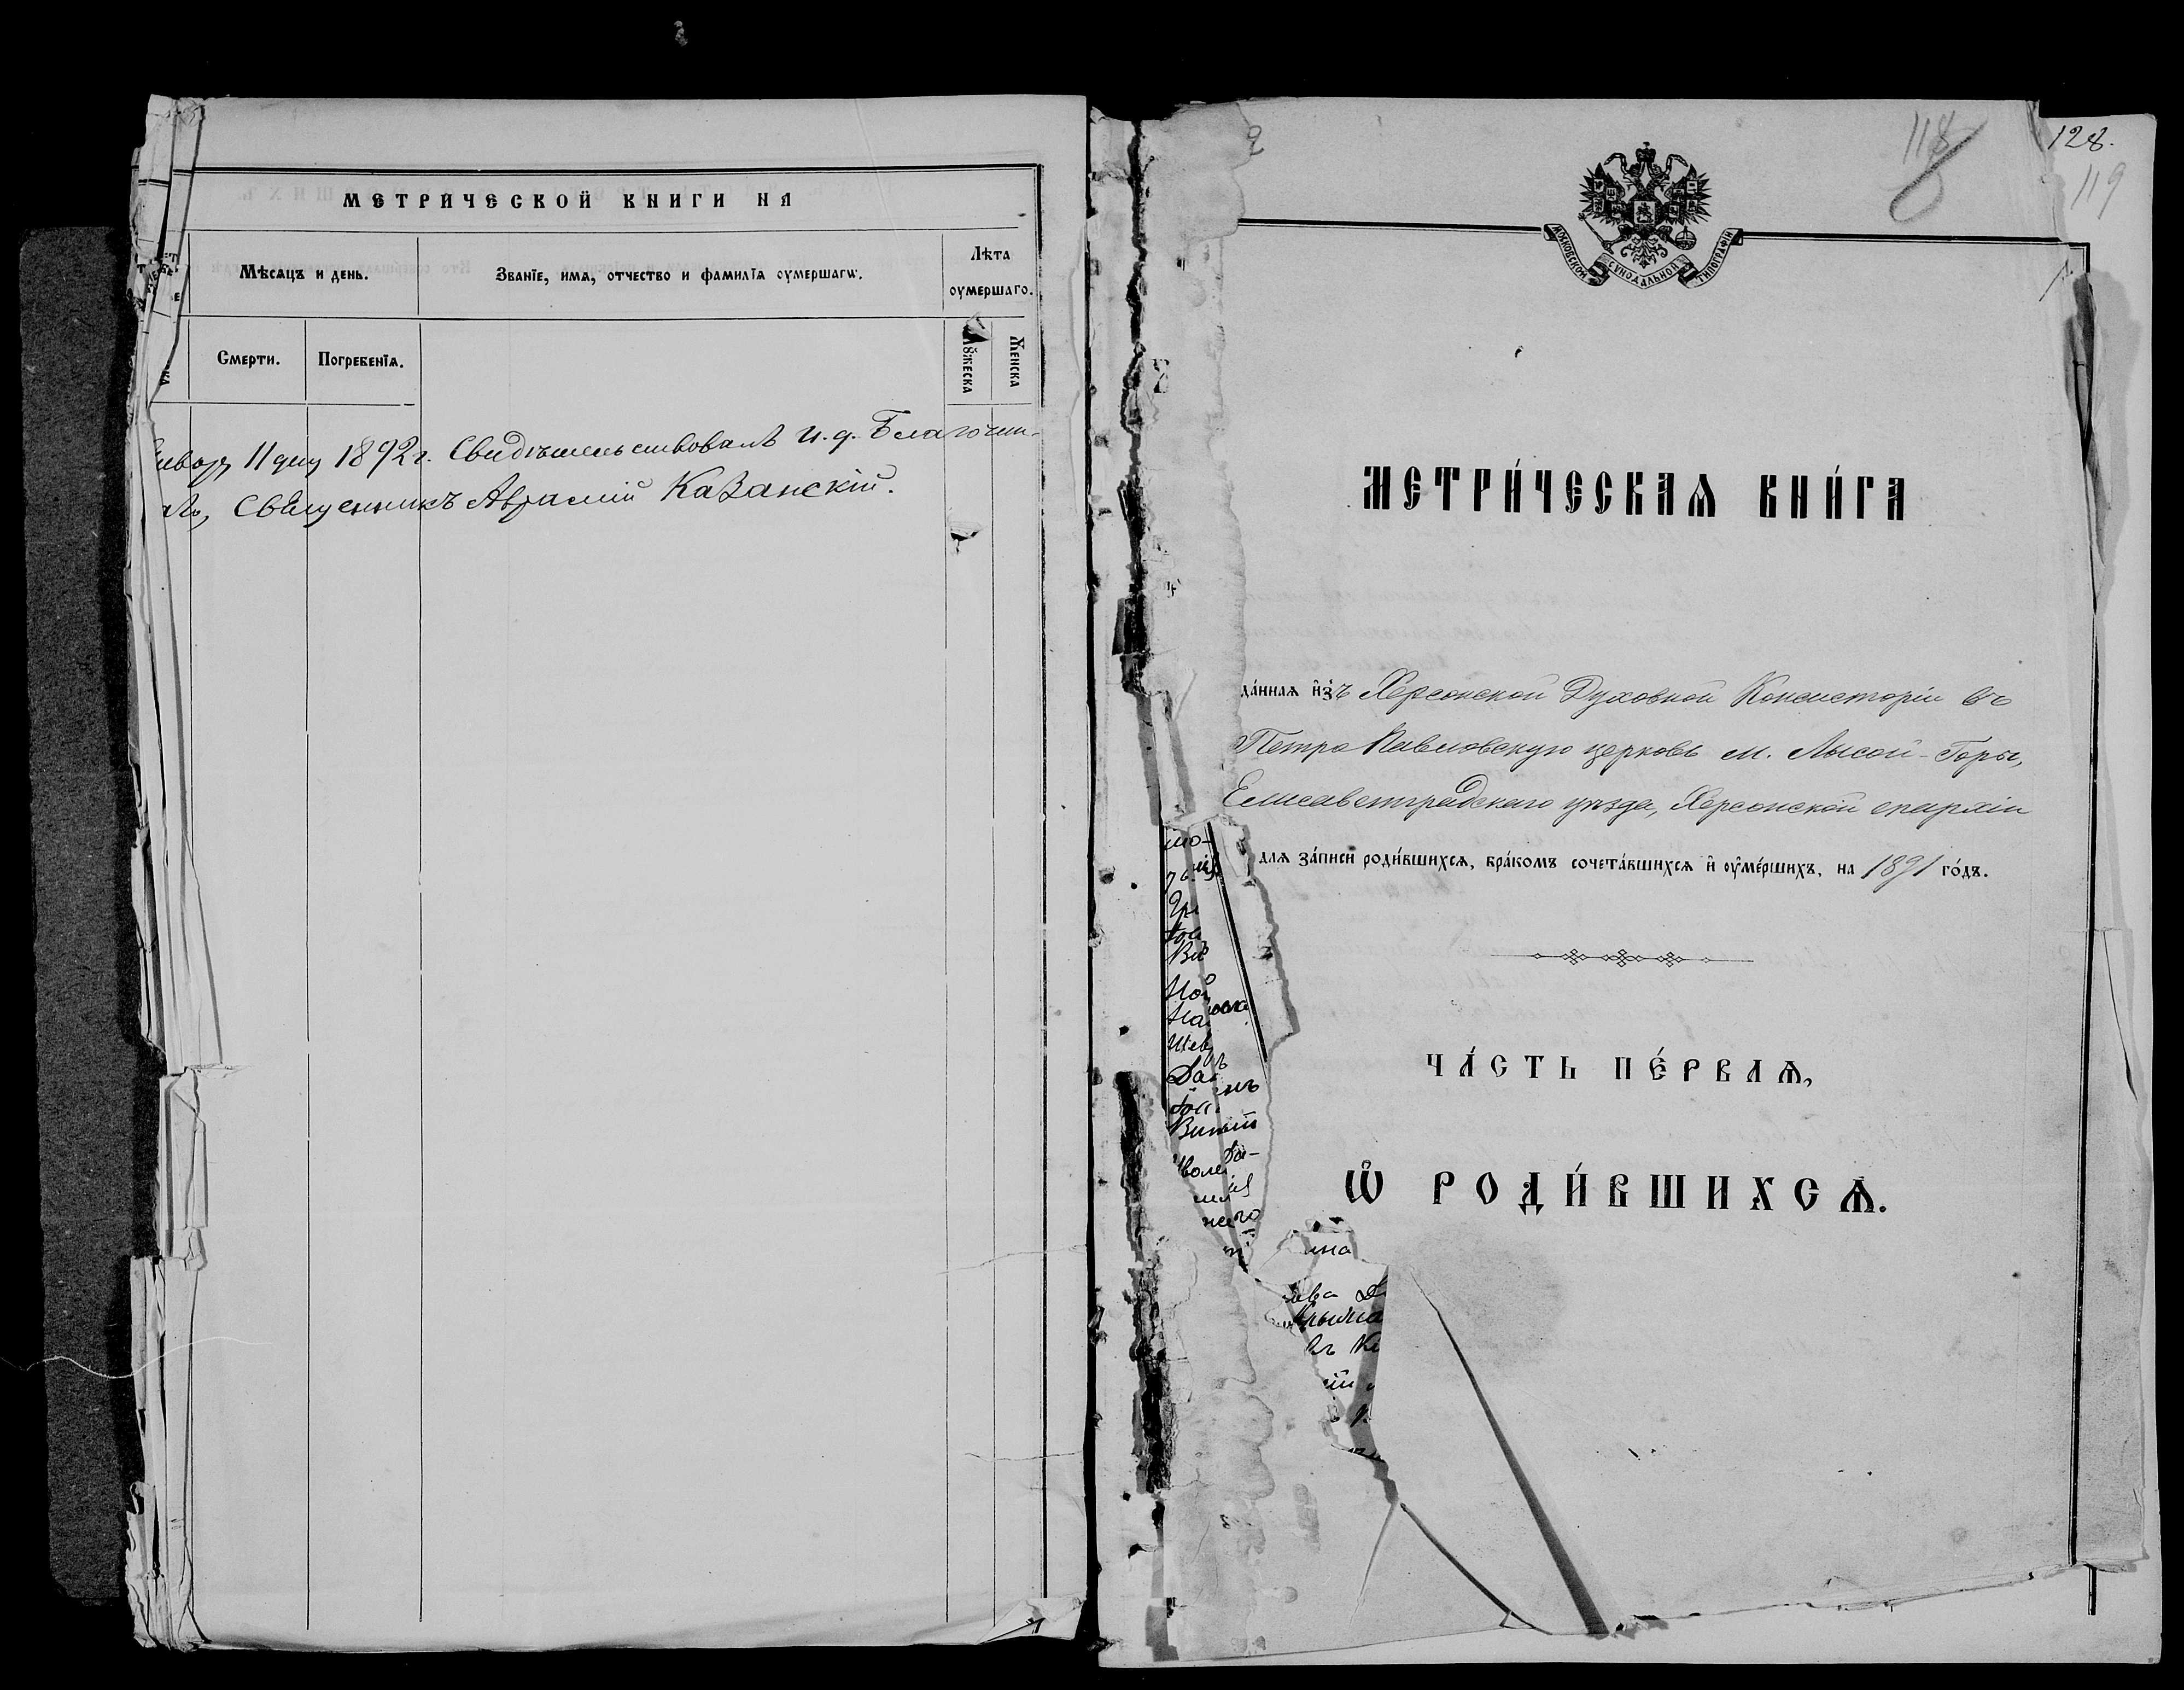 МЕТРИЧЕСКОЙ КНИГИ НА
Мѣсяцъ и день.
Званїе, имя, отчество и фамилїя оумершагѡ.
Лѣта
оумершаго.
Смерти.
Погребенїя.
Женска
11 дня 1892 г. Свидѣтельствовалъ и. д. Благочин-
Священникъ Аврамій Казанскій.
118
128.
119
МОСКОВСКОЙ СѴНОДАЛЬНОЙ ТИПОГРАФІИ
1.
МЕТРИ́ЧЕСКАЯ КНИ́ГА
да́нная и҆зъ Херсонской Духовной Консисторіи въ
Петро Павловскую церковь м. Лысой-Горы,
Елисаветградскаго уѣзда, Херсонской епархіи
для за́писи роди́вшихся, бра́комъ сочета́вшихся и҆ оу҆ме́ршихъ, на 1891 го́дъ.
ЧА́СТЬ ПЕ́РВАЯ,
Ѽ РОДИ́ВШИХСЯ.